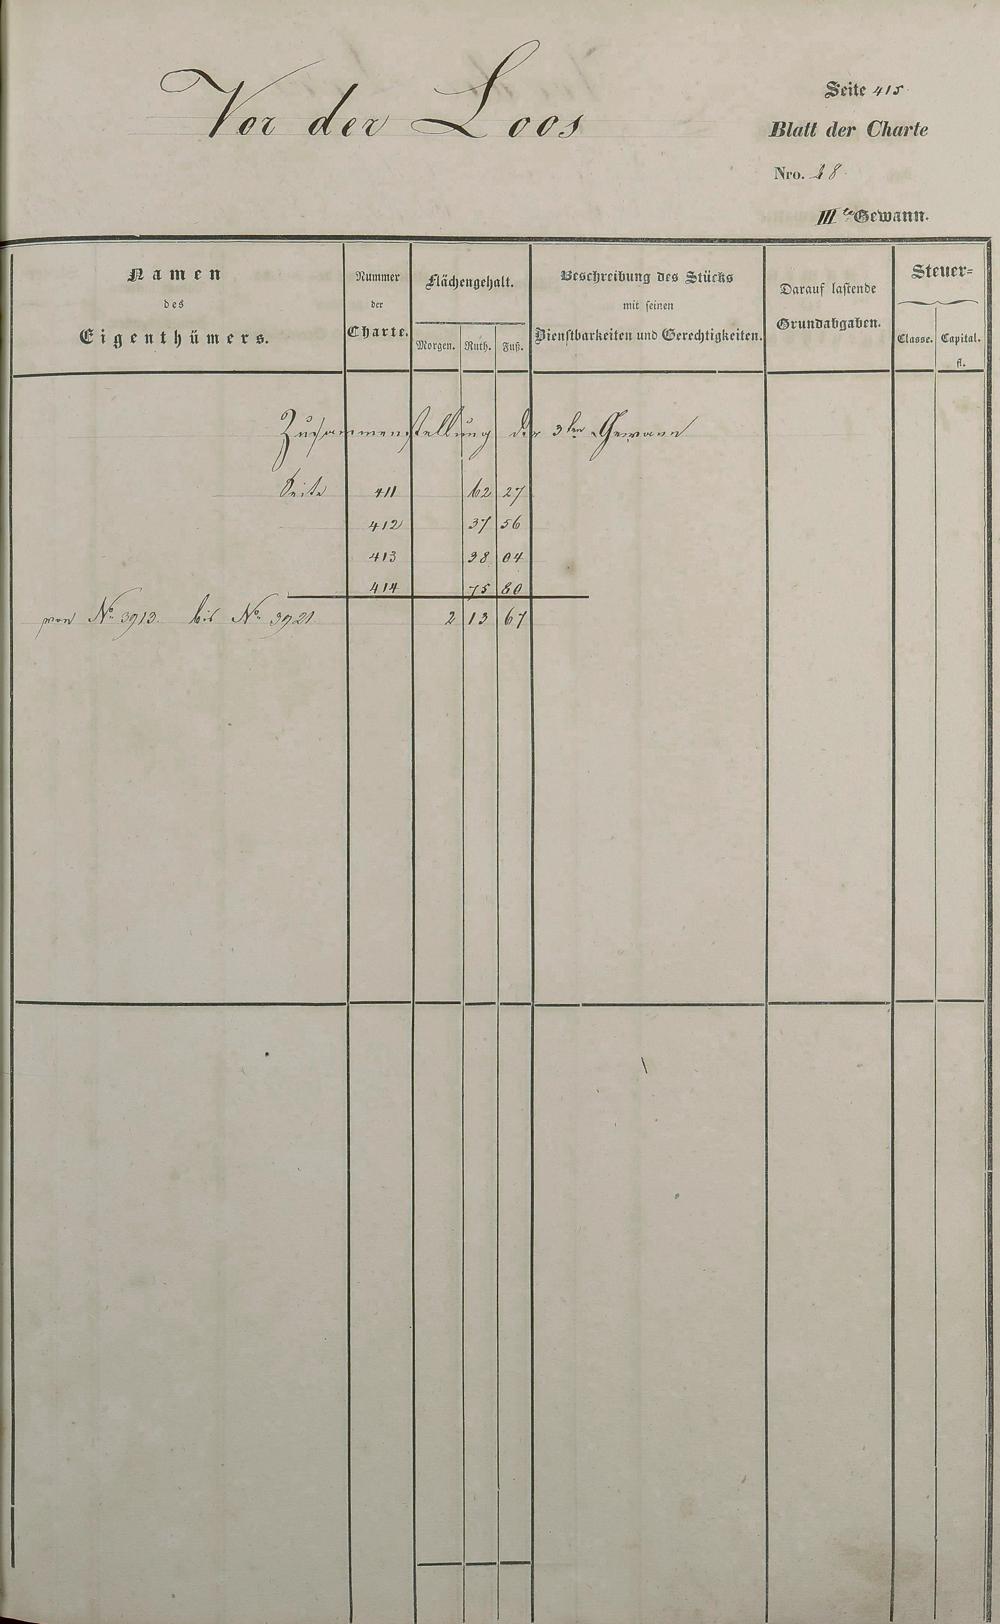 Vor der Loos
Seite 415
Blatt der Charte
Nro. 28
III te Gewann.
Namen des Eigenthümers.
Nummer der Charte.
Flächengehalt.
Morgen. Ruth. Fuß.
Beschreibung des Stücks mit seinen Dienstbarkeiten und Gerechtigkeiten.
Darauf lastende Grundabgaben.
Steuer=
Classe. Capital. fl.
Zusammenstellung der 3ten Gewann
Seite 411 62 27
412 37 56
413 38 04
414 75 80
von No. 3913. bis No. 3921 2 13 67